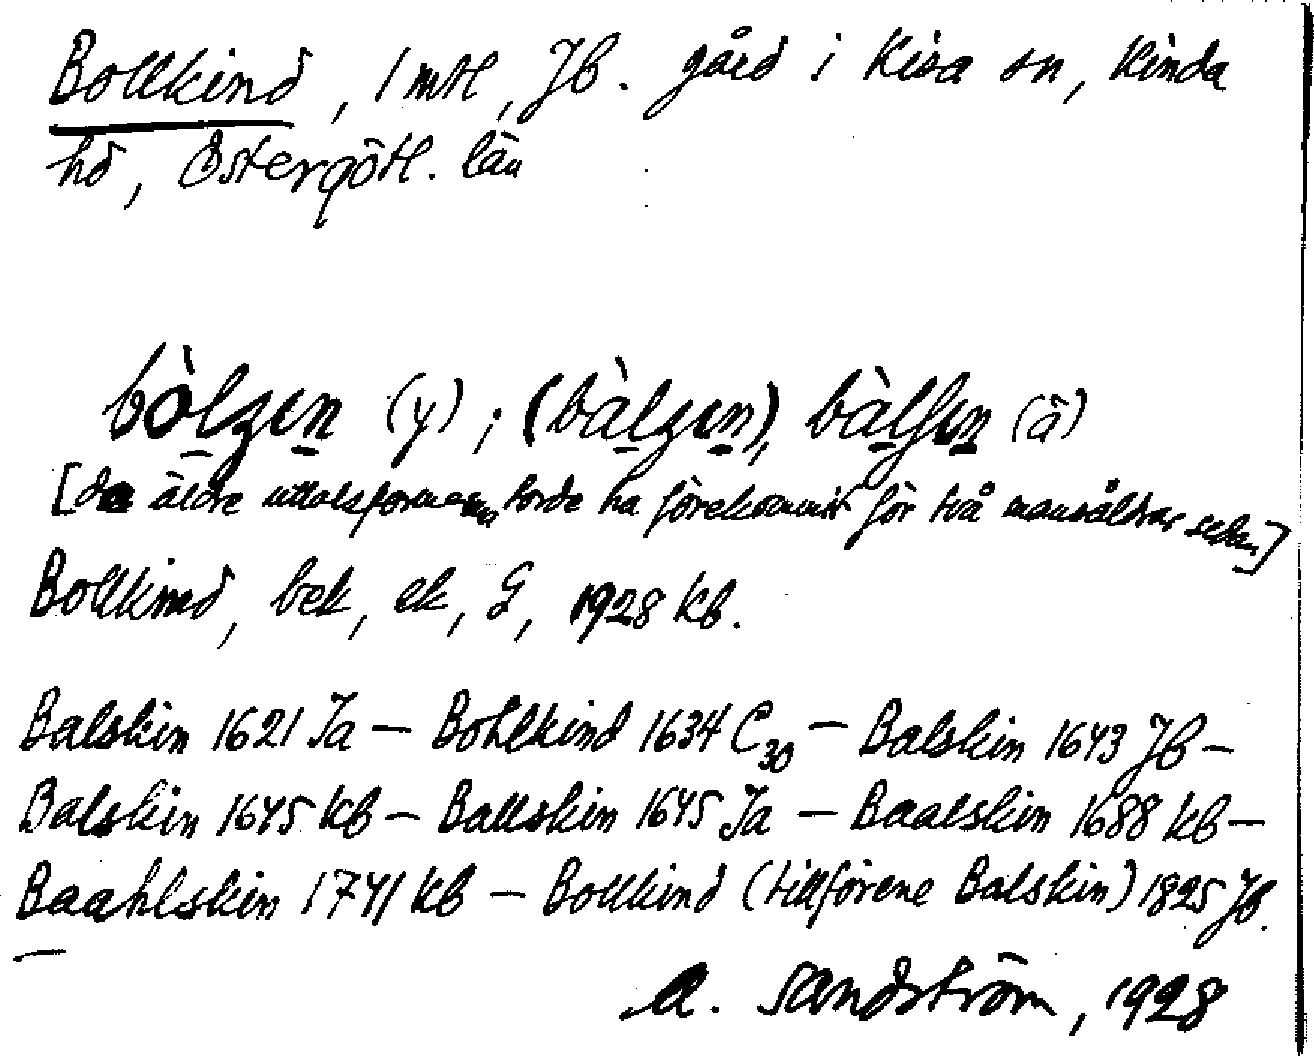 Bollkind, 1 mtl, Jb. gård i Kisa sn, Kinda
hd, Östergötl. län
bòlʒen (y); (bàlʒen), bàlʃen (ä)
[de äldre uttalsformerna torde ha förekommit för två mansåldrar sedan]
Bollkind, bek, ek, G, 1928 kb.
Balskin 1621 Ja – Bohlkind 1634 C30 – Balskin 1643 Jb –
Balskin 1645 kb – Ballskin 1645 Ja – Baalskin 1688 kb –
Baahlskin 1741 kb – Bollkind (tillförene Balskin) 1825 Jb.
–
A. Sandström, 1928